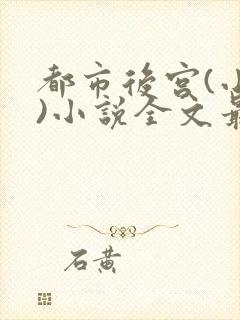 都市後宮(小
)小說全文最
石黄